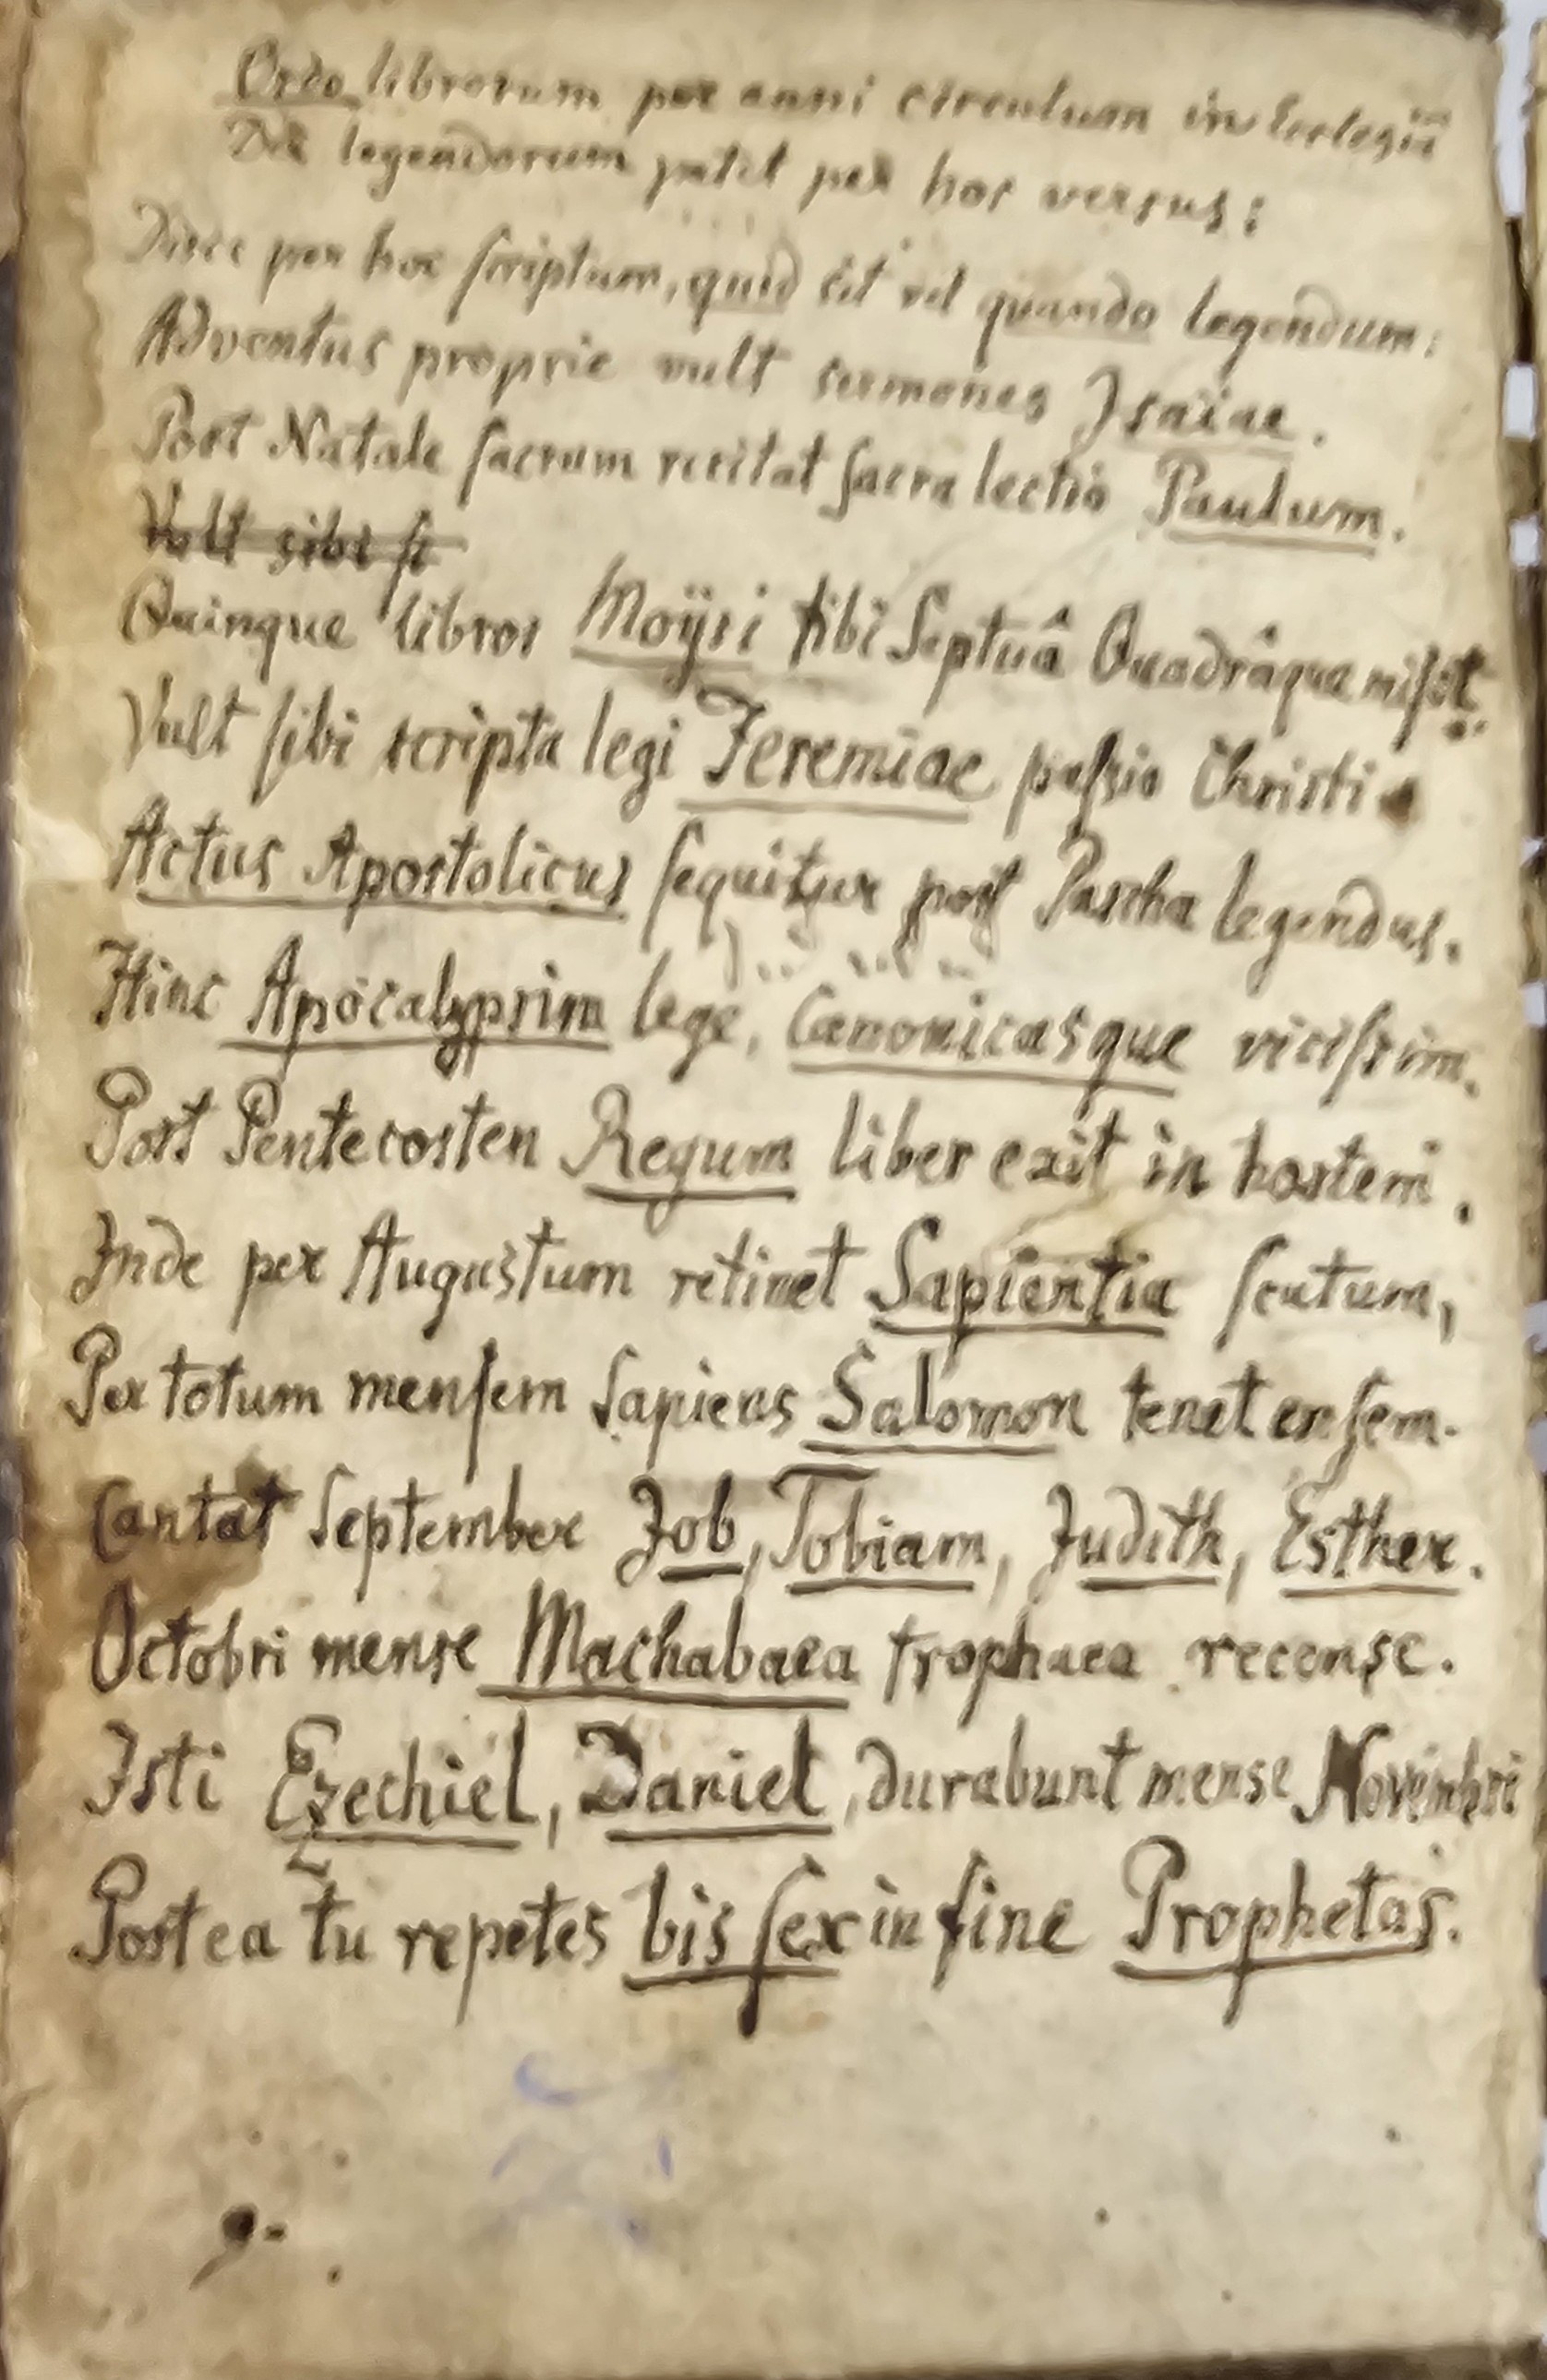 Ordo librorum per anni circulum in Ecclesiâ
legendorum patet per hos versus:
Disce per hoc scriptum, quid sit vel quando legendum:
Adventus proprie vult sermones Isaïae.
Post Natale sacrum recitat sacra lectio Paulum.
Vult sibi sc
Quinque libros Moÿsi tibi Septuâ Quadrâque misit
Vult sibi scripta legi Jeremiae passio Christi.
Actus Apostolicus sequitur post Pascha legendus.
Hinc Apocalypsim lege, Canonicasque vicissim.
Post Pentecosten Regum liber exit in hostem.
Inde per Augustum retinet Sapientia scutum,
Per totum mensem sapiens Salomon tenet ensem.
Cantat September Job, Tobiam, Judith, Esther.
Octobri mense Machabaea trophaea recense.
Isti Ezechiel, Daniel, durabunt mense Novembri
Postea tu repetes bis sex in fine Prophetas.